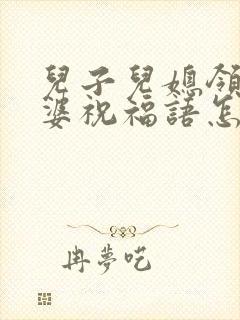 兒子兒媳領
婆祝福語怎
冉夢呓